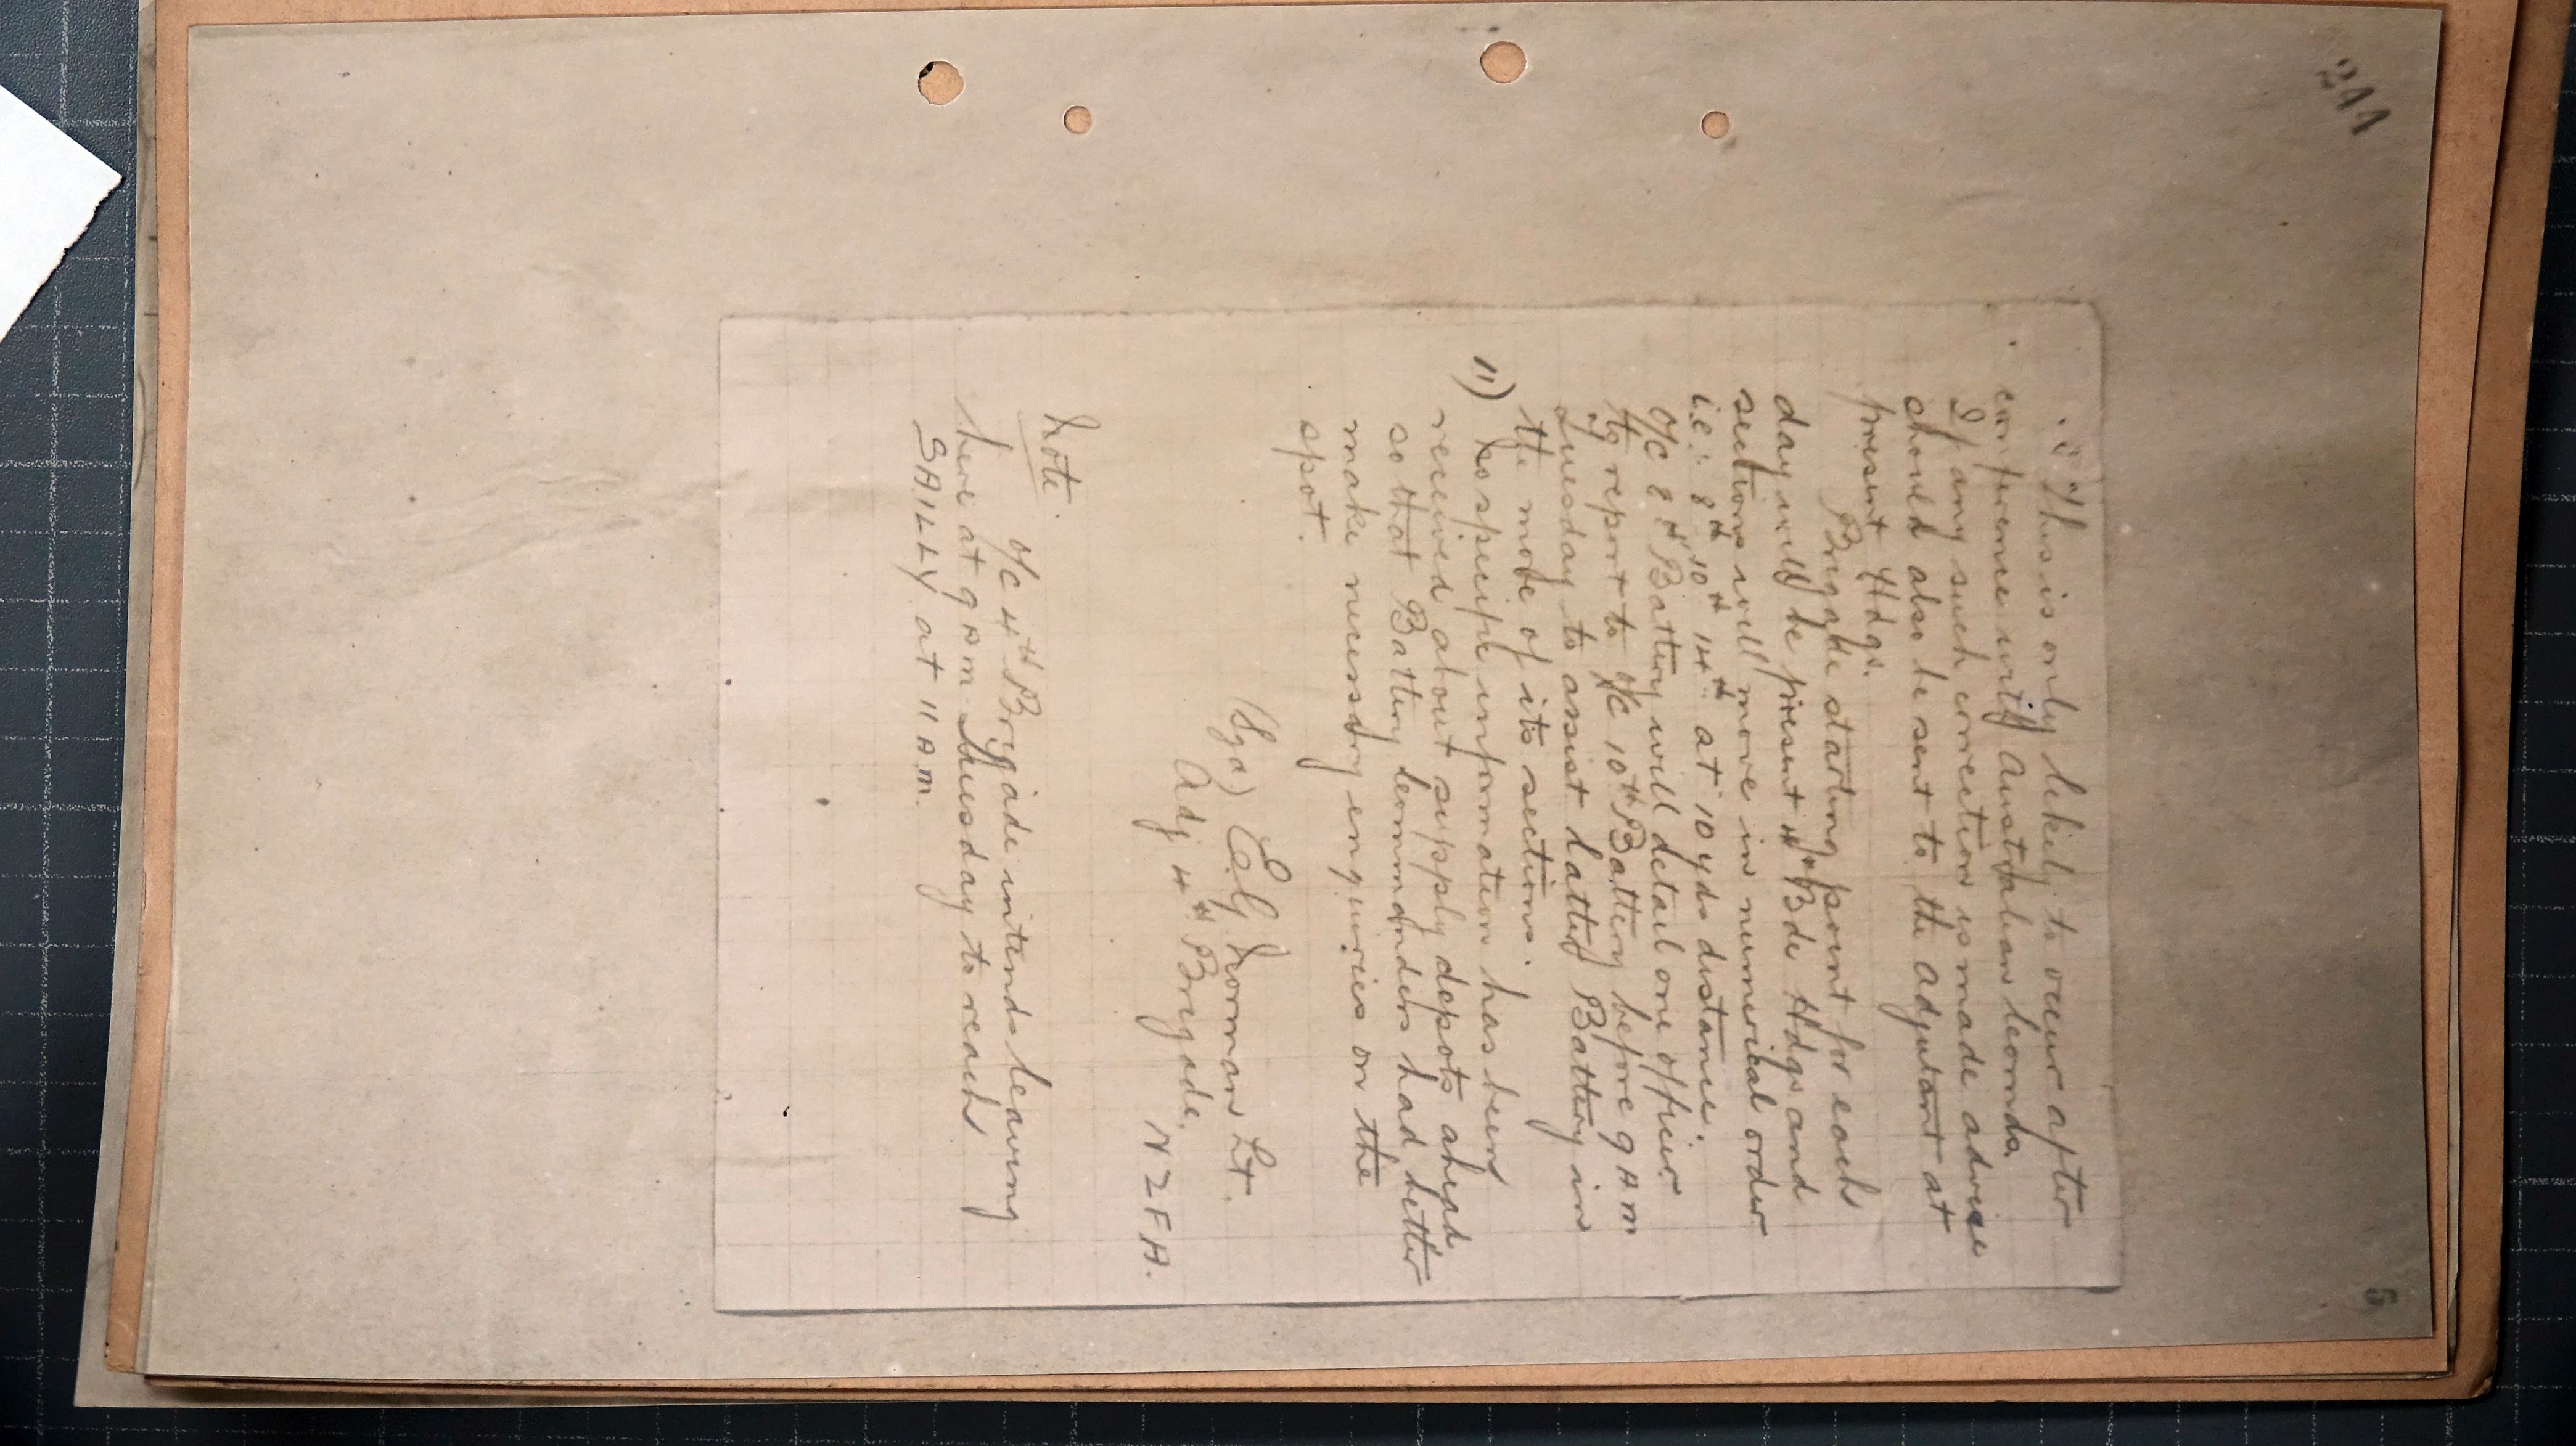 244
5
This is only likely to occur after
conference with Australian Comds.
If any such correction is made advice
should also be sent to the Adjutant at
present Hdqs.
Brigade starting point for each
day will be present 4th Bde Hdqs and
sections will move in numerical order
i.e. 8th 10th 14th at 10 yds distance.
O/C 8th Battery will detail one officer
to report to O/C 10th Battery before 9 AM
Tuesday to assist latter Battery in
the move of its sections.
11) No specific information has been
received about supply depots ahead
so that Battery Commanders had better
make necessary enquiries on the
spot.
(Sgd) C.G. Norman Lt.
Adj 4th Brigade.
NZFA.
Note
O/C 4th Brigade intends leaving
here at 9 AM Tuesday to reach
SAILLY at 11 AM.